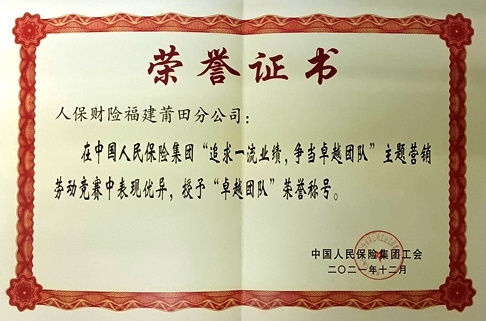 荣誉证书
人保财险福建莆田分公司：
在中国人民保险集团“追求一流业绩，争当卓越团队”主题营销
劳动竞赛中表现优异，授予“卓越团队”荣誉称号。
中国人民保险集团工会
二〇二一年十二月